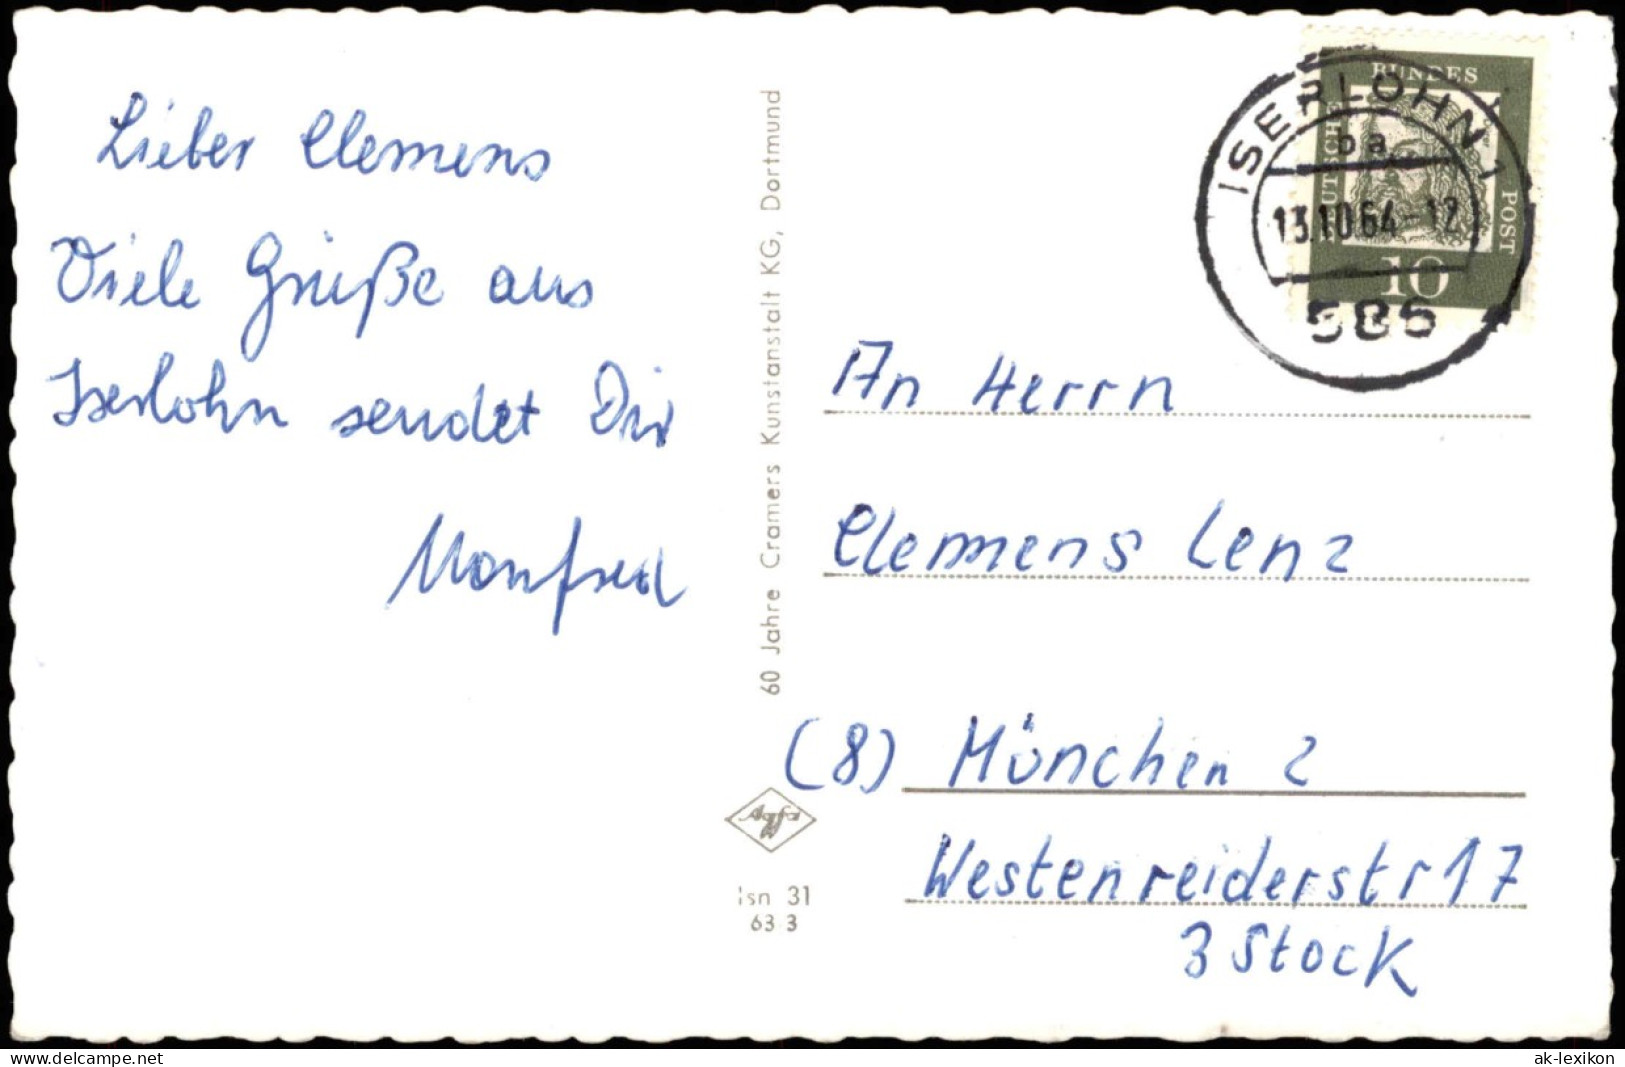 Lieber Clemens
Viele Grüße aus
Iserlohn sendet Dir
Manfred
60 Jahre Cramers Kunstanstalt KG, Dortmund
Agfa
Isn 31
63 3
BUNDES
DEUTSCHE
POST
10
ISERLOHN 1
ba
13.10.64-12
586
An Herrn
Clemens Lenz
(8) München 2
Westenreiderstr 17
3 Stock
delcampe.net
ak-lexikon